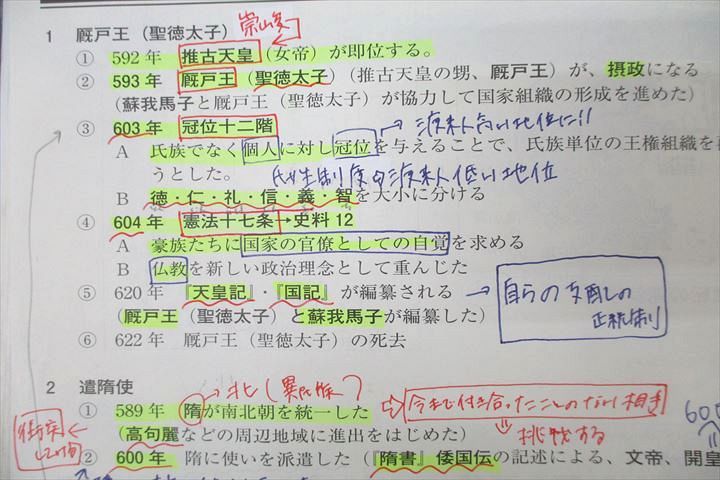 1 厩戸王（聖徳太子）
① 592年 推古天皇（女帝）が即位する。
② 593年 厩戸王（聖徳太子）（推古天皇の甥、厩戸王）が、摂政になる
（蘇我馬子と厩戸王（聖徳太子）が協力して国家組織の形成を進めた）
③ 603年 冠位十二階
→渡来人高い地位に!!
A 氏族でなく個人に対し冠位を与えることで、氏族単位の王権組織を
うとした。
渡来人低い地位
B 徳・仁・礼・信・義・智を大小に分ける
④ 604年 憲法十七条→史料12
A 豪族たちに国家の官僚としての自覚を求める
B 仏教を新しい政治理念として重んじた
⑤ 620年 『天皇記』・『国記』が編纂される
（厩戸王（聖徳太子）と蘇我馬子が編纂した）
→自らの支配しの
正統制
⑥ 622年 厩戸王（聖徳太子）の死去
2 遣隋使
→北（異民族）
① 589年 隋が南北朝を統一した
⇒今まで付き合ったことのない相手
（高句麗などの周辺地域に進出をはじめた）
挑戦する
② 600年 隋に使いを派遣した（『隋書』倭国伝の記述による、文帝、開皇